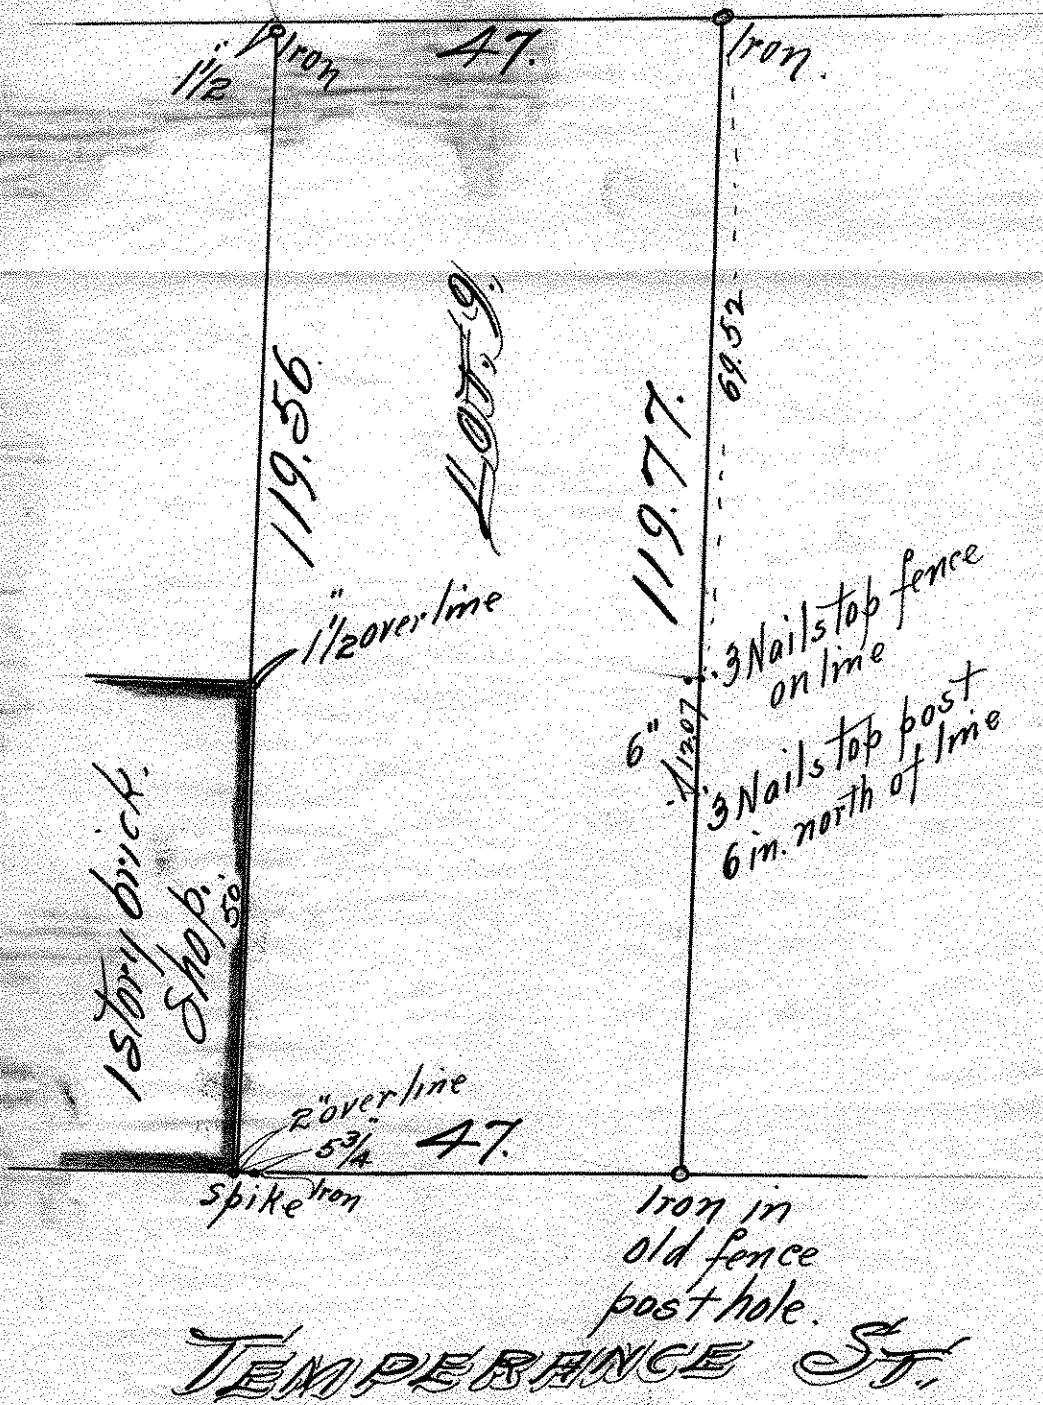 1½"
Iron
47.
Iron.
119.56
LOT, 9.
119.77.
69.52
1½" over line
3 Nails top fence
on line
6"
12.07
3 Nails top post
6 in. north of line
1 story brick.
Shop.
50'
2" over line
5¾"
47.
spike
Iron
Iron in
old fence
post hole.
TEMPERANCE ST.